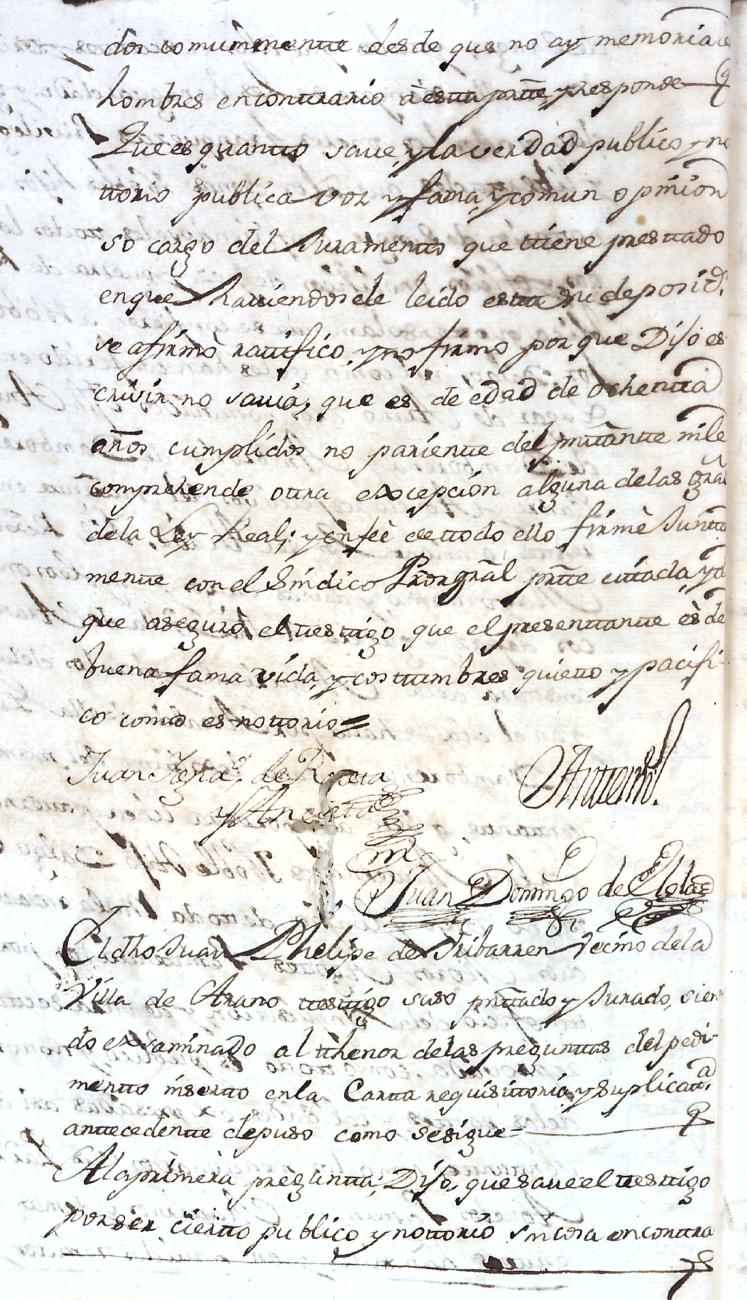 dos comunmente desde que no ay memoria de
hombres encontrario â esta prte, y responde
Que es quanto save, y la verdad publico y no
ttorio publica voz y fama, y comun opinion
so cargo del Juramento que ttiene presttado
enque haviendosele leido estta su deposion,
se afirmò rattifico, y no firmo por que Dijo es
crivir no savia, que es de edad de ochentta
años cumplidos no parientte del prntantte nile
comprehende ottra excepción alguna delas grãs
dela Ley Real; y enfeè de ttodo ello firmè Juntta
mentte con el Sindico Prorgrãl prtte cittada, y
que aseguró el testtigo que el presenttantte ês de
buena fama vida, y costtumbres quietto y pacifi-
co como es nottorio=
Juan Igno. de
y
Anttemi
Juan Domingo de
El dho Juan Phelipe de Iribarren Vecino dela
Villa de Arano testtigo suso prnttado y Jurado, sien
do examinado al thenor delas preguntas del pedi-
mentto inserto enla Cartta requisittoria, y suplicatta.
anttecedentte depuso como sesigue=
Ala primera preguntta, Dijo, que save el testtigo
por ser ciertto publico y nottorio sin cosa encontra